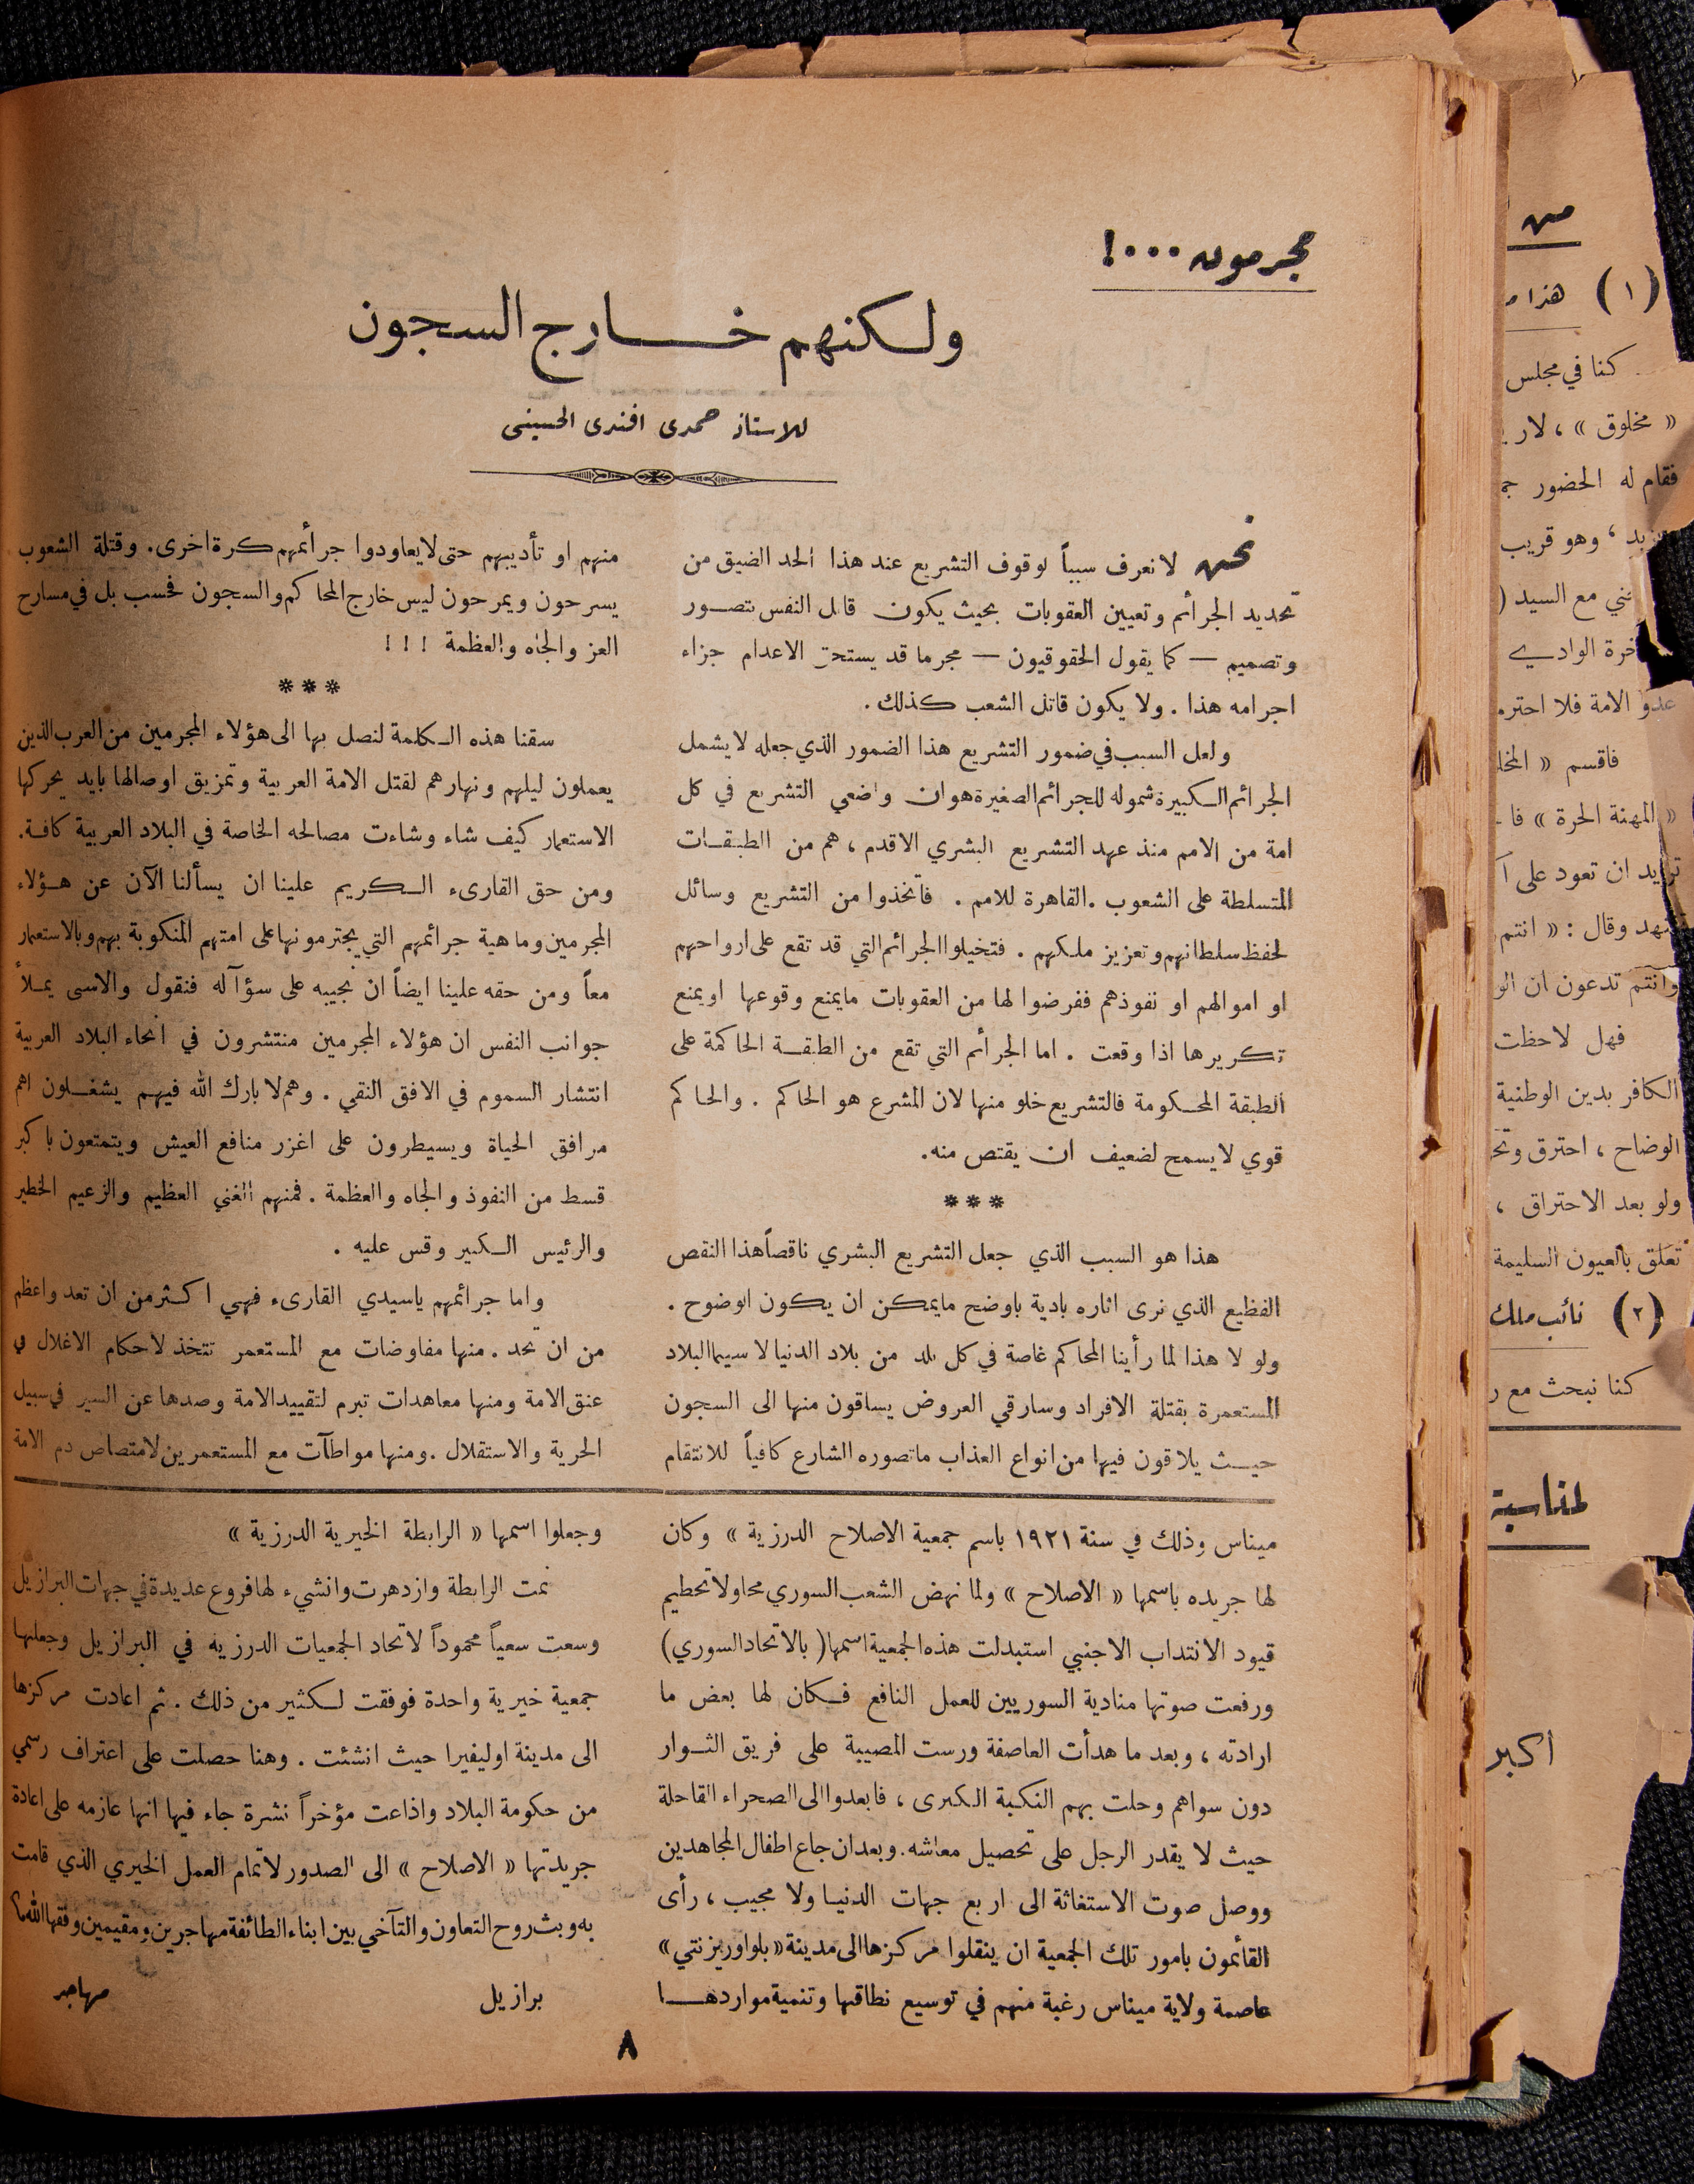 مجرمون ...!
ولكنهم خارج السجون
للاستاذ حمدى افندى الحسينى
نحن لا نعرف سبباً لوقوف التشريع عند هذا الحد الضيق من
تحديد الجرائم وتعيين العقوبات بحيث يكون قاتل النفس بتصور
وتصميم — كما يقول الحقوقيون — مجرما قد يستحق الاعدام جزاء
اجرامه هذا . ولا يكون قاتل الشعب كذلك .
ولعل السبب في ضمور التشريع هذا الضمور الذي جعله لا يشمل
الجرائم الكبيرة شموله للجرائم الصغيرة هو ان واضعي التشريع في كل
امة من الامم منذ عهد التشريع البشري الاقدم ، هم من الطبقات
المتسلطة على الشعوب . القاهرة للامم . فاتخذوا من التشريع وسائل
لحفظ سلطانهم وتعزيز ملكهم . فتخيلوا الجرائم التي قد تقع على ارواحهم
او اموالهم او نفوذهم ففرضوا لها من العقوبات ما يمنع وقوعها او يمنع
تكريرها اذا وقعت . اما الجرائم التي تقع من الطبقة الحاكمة على
الطبقة المحكومة فالتشريع خلو منها لان المشرع هو الحاكم . والحاكم
قوي لا يسمح لضعيف ان يقتص منه .
***
هذا هو السبب الذي جعل التشريع البشري ناقصاً هذا النقص
الفظيع الذي نرى اثاره بادية باوضح ما يمكن ان يكون الوضوح .
ولو لا هذا لما رأينا المحاكم غاصة في كل بلد من بلاد الدنيا لا سيما البلاد
المستعمرة بقتلة الافراد وسارقي العروض يساقون منها الى السجون
حيث يلاقون فيها من انواع العذاب ما تصوره الشارع كافياً للانتقام
منهم او تأديبهم حتى لا يعاودوا جرائمهم كرة اخرى . وقتلة الشعوب
يسرحون ويمرحون ليس خارج المحاكم والسجون فحسب بل في مسارح
العز والجاه والعظمة ! ! !
***
سقنا هذه الكلمة لنصل بها الى هؤلاء المجرمين من العرب الذين
يعملون ليلهم ونهارهم لقتل الامة العربية وتمزيق اوصالها بايد يحركها
الاستعمار كيف شاء وشاءت مصالحه الخاصة في البلاد العربية كافة .
ومن حق القارىء الكريم علينا ان يسألنا الآن عن هؤلاء
المجرمين وماهية جرائمهم التي يجترمونها على امتهم المنكوبة بهم وبالاستعمار
معاً ومن حقه علينا ايضاً ان نجيبه على سؤآله فنقول والاسى يملأ
جوانب النفس ان هؤلاء المجرمين منتشرون في انحاء البلاد العربية
انتشار السموم في الافق النقي . وهم لا بارك الله فيهم يشغلون اهم
مرافق الحياة ويسيطرون على اغزر منافع العيش ويتمتعون باكبر
قسط من النفوذ والجاه والعظمة . فمنهم الغني العظيم والزعيم الخطير
والرئيس الكبير وقس عليه .
واما جرائمهم ياسيدي القارىء فهي اكثر من ان تعد واعظم
من ان تحد . منها مفاوضات مع المستعمر تتخذ لاحكام الاغلال في
عنق الامة ومنها معاهدات تبرم لتقييد الامة وصدها عن السير في سبيل
الحرية والاستقلال . ومنها مواطآت مع المستعمرين لامتصاص دم الامة
ميناس وذلك في سنة ١٩٢١ باسم جمعية الاصلاح الدرزية » وكان
لها جريده باسمها « الاصلاح » ولما نهض الشعب السوري محاولا تحطيم
قيود الانتداب الاجنبي استبدلت هذه الجمعية اسمها ( بالاتحاد السوري )
ورفعت صوتها منادية السوريين للعمل النافع فكان لها بعض ما
ارادته ، وبعد ما هدأت العاصفة ورست المصيبة على فريق الثوار
دون سواهم وحلت بهم النكبة الكبرى ، فابعدوا الى الصحراء القاحلة
حيث لا يقدر الرجل على تحصيل معاشه . وبعد ان جاع اطفال المجاهدين
ووصل صوت الاستغاثة الى اربع جهات الدنيا ولا مجيب ، رأى
القائمون بامور تلك الجمعية ان ينقلوا مركزها الى مدينة « بلو اوريزنتي »
عاصمة ولاية ميناس رغبة منهم في توسيع نطاقها وتنمية مواردها
وجعلوا اسمها « الرابطة الخيرية الدرزية »
نمت الرابطة وازدهرت وانشيء لها فروع عديدة في جهات البرازيل
وسعت سعياً محموداً لاتحاد الجمعيات الدرزيه في البرازيل وجعلها
جمعية خيرية واحدة فوفقت لكثير من ذلك . ثم اعادت مركزها
الى مدينة اوليفيرا حيث انشئت . وهنا حصلت على اعتراف رسمي
من حكومة البلاد واذاعت مؤخراً نشرة جاء فيها انها عازمه على اعادة
جريدتها « الاصلاح » الى الصدور لاتمام العمل الخيري الذي قامت
به وبث روح التعاون والتآخي بين ابناء الطائفة مهاجرين ومقيمين وفقها الله
برازيل مهاجر
٨
(١) هذا
كنا في مجلس
« مخلوق » ، لا
فقام له الحضور
، وهو قريب
مع السيد (
الوادي
عدو الامة فلا
فاقسم «
« المهنة الحرة »
تريد ان تعود على
وقال : « انتم
وانتم تدعون ان
فهل لاحظت
الكافر بدين الوطنية
الوضاح ، احترق
ولو بعد الاحتراق ،
تعلق بالعيون السليمة
(٢) نائب ملك
كنا نبحث مع
لمناسبة
اكبر